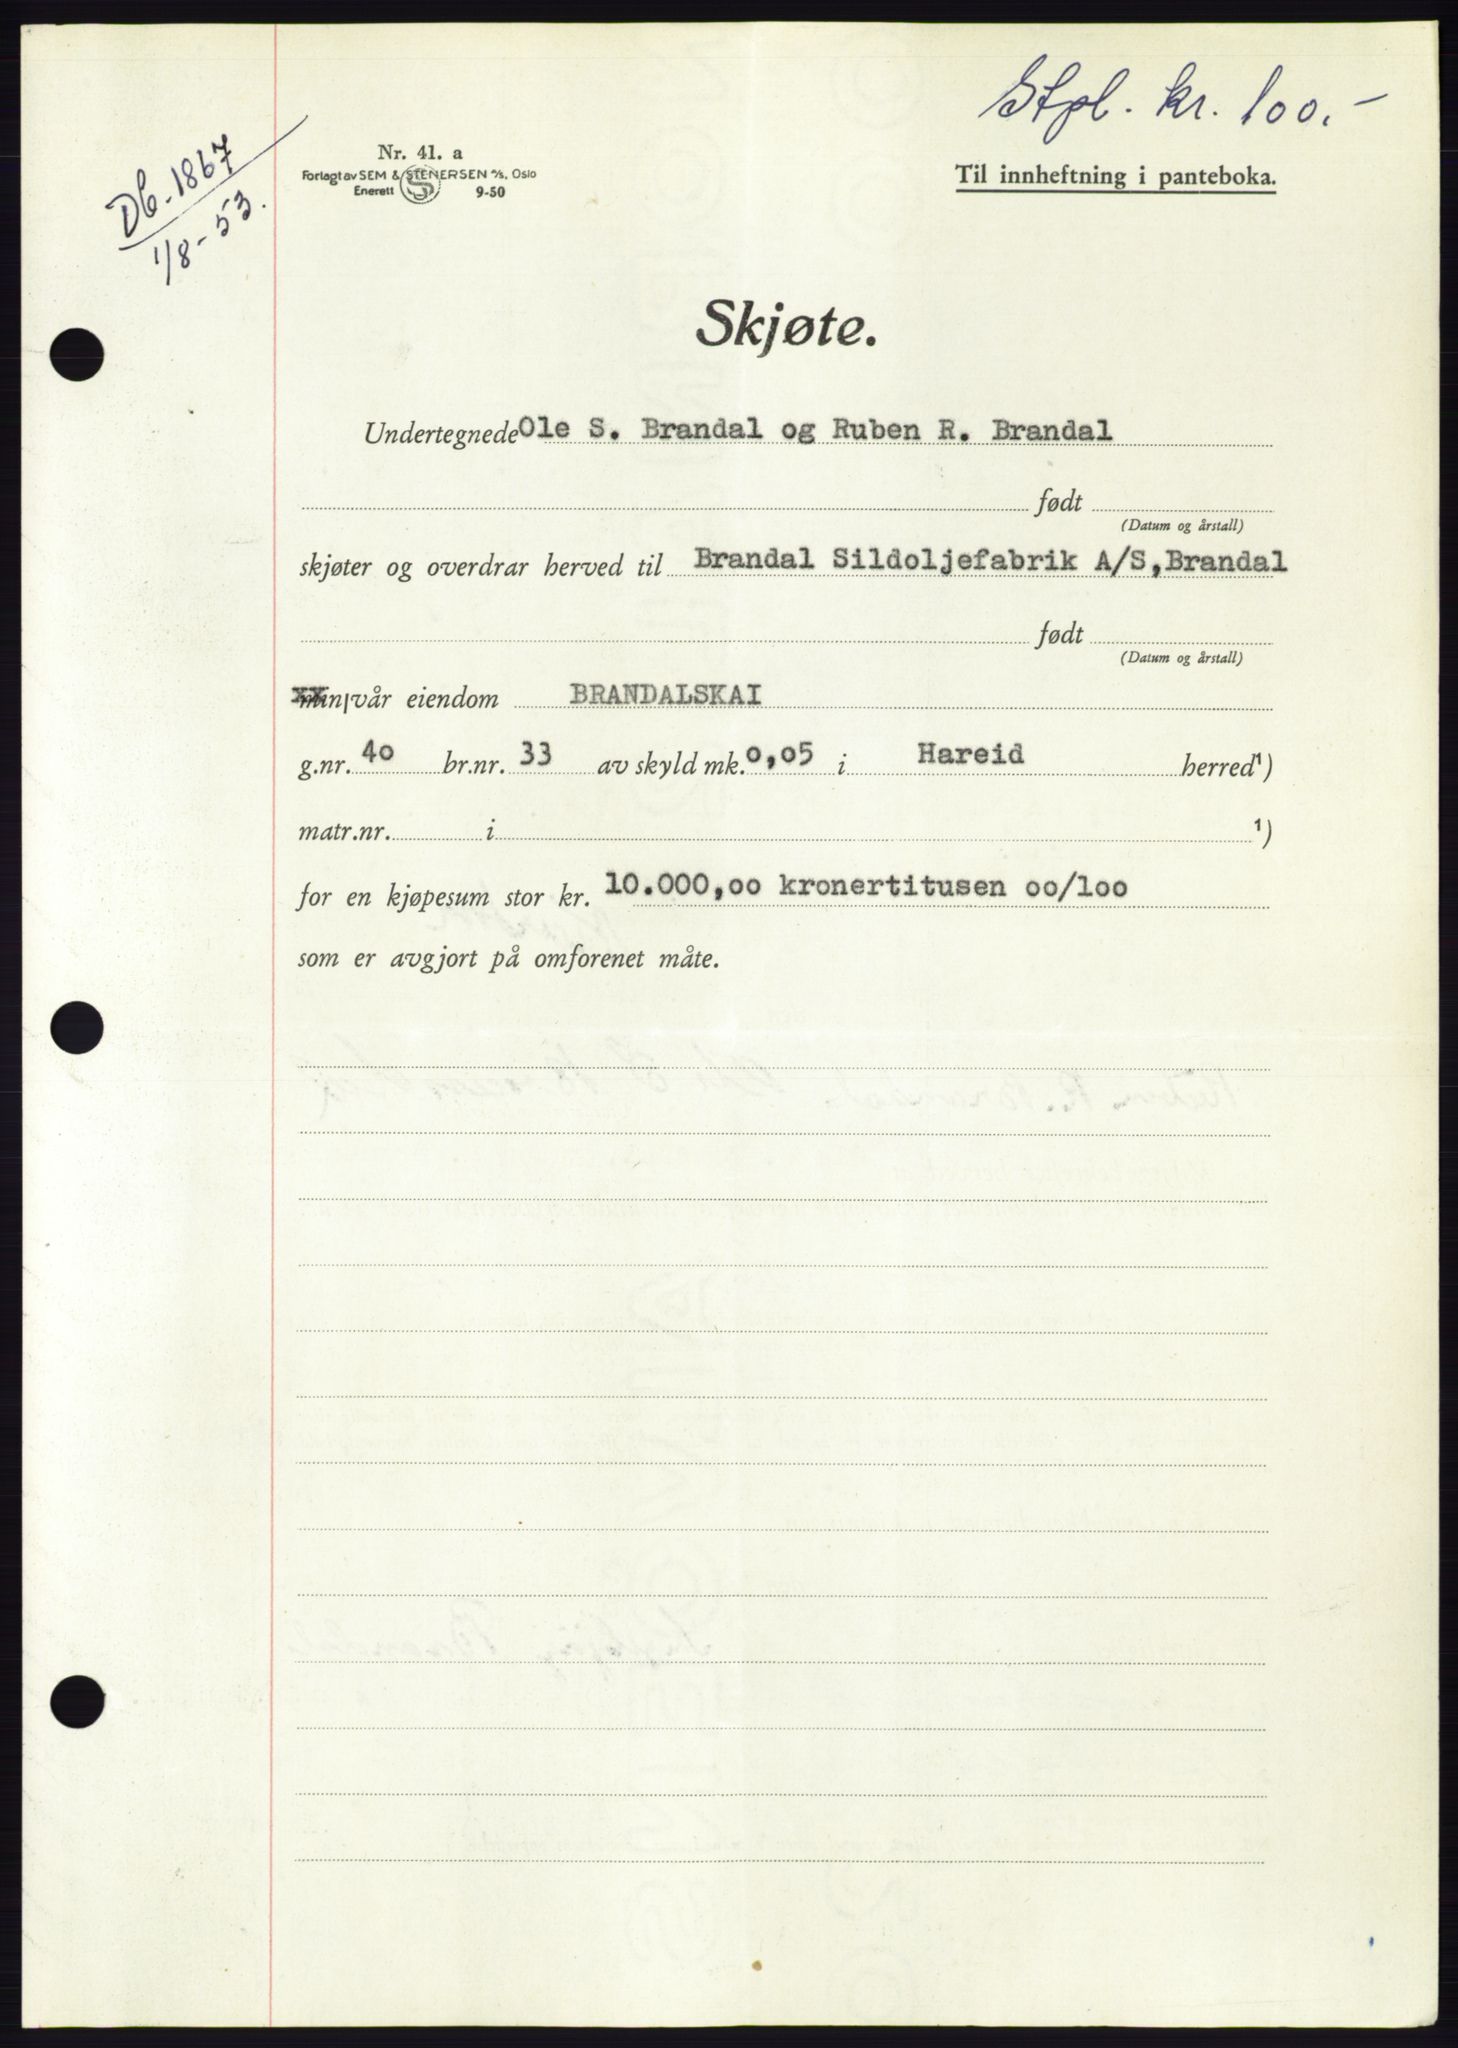 Stpl. kr. 100.-
Db. 1867
1/8-53.
Nr. 41. a
Forlagt av SEM & STENERSEN A/S, Oslo
Enerett S 9-50
Til innheftning i panteboka.
Skjøte.
Undertegnede Ole S. Brandal og Ruben R. Brandal
født
(Datum og årstall)
skjøter og overdrar herved til Brandal Sildoljefabrik A/S, Brandal
født
(Datum og årstall)
min/vår eiendom BRANDALSKAI
g.nr. 40 br.nr. 33 av skyld mk. 0,05 i Hareid herred¹)
matr.nr. i ¹)
for en kjøpesum stor kr. 10.000,oo kronertitusen oo/loo
som er avgjort på omforenet måte.